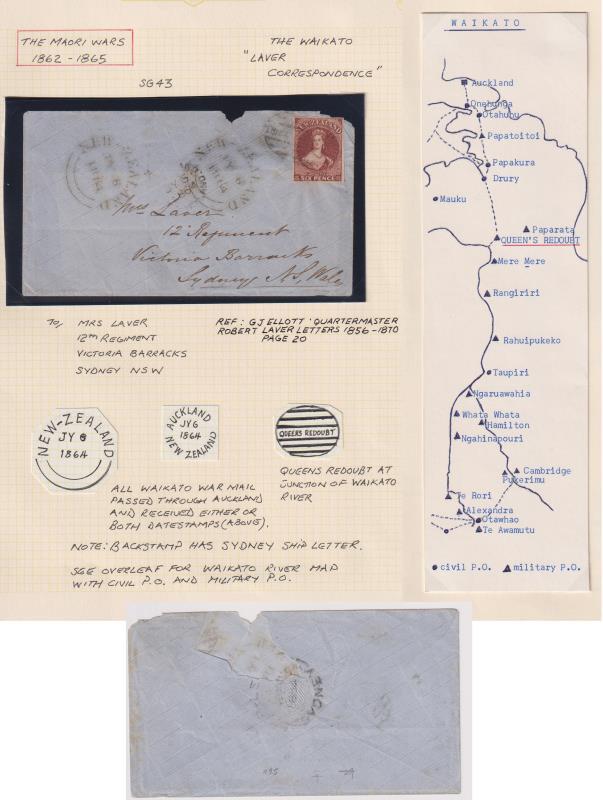 THE MAORI WARS
1862 - 1865
THE WAIKATO
"LAVER
CORRESPONDENCE"
SG43
NEW-ZEALAND
JY 6
1864
NEW-ZEALAND
JY 6
1864
NEW ZEALAND
SIX PENCE
Mrs Laver
12 Regiment
Victoria Barracks
Sydney N S, Wales
TO, MRS LAVER
12TH REGIMENT
VICTORIA BARRACKS
SYDNEY NSW
REF: GJ ELLOTT 'QUARTERMASTER
ROBERT LAVER LETTERS 1856-1870
PAGE 20
NEW-ZEALAND
JY 6
1864
AUCKLAND
JY 6
1864
NEW ZEALAND
QUEENS REDOUBT
ALL WAIKATO WAR MAIL
PASSED THROUGH AUCKLAND
AND RECEIVED EITHER OR
BOTH DATESTAMPS (ABOVE).
QUEENS REDOUBT AT
JUNCTION OF WAIKATO
RIVER
NOTE: BACKSTAMP HAS SYDNEY SHIP LETTER.
SEE OVERLEAF FOR WAIKATO RIVER MAP
WITH CIVIL P.O. AND MILITARY P.O.
WAIKATO
Auckland
Onehunga
Otahuhu
Papatoitoi
Papakura
Drury
Mauku
Paparata
QUEEN'S REDOUBT
Mere Mere
Rangiriri
Rahuipukeko
Taupiri
Ngaruawahia
Whata Whata
Hamilton
Ngahinapouri
Cambridge
Pukerimu
Te Rori
Alexandra
Otawhao
Te Awamutu
civil P.O. military P.O.